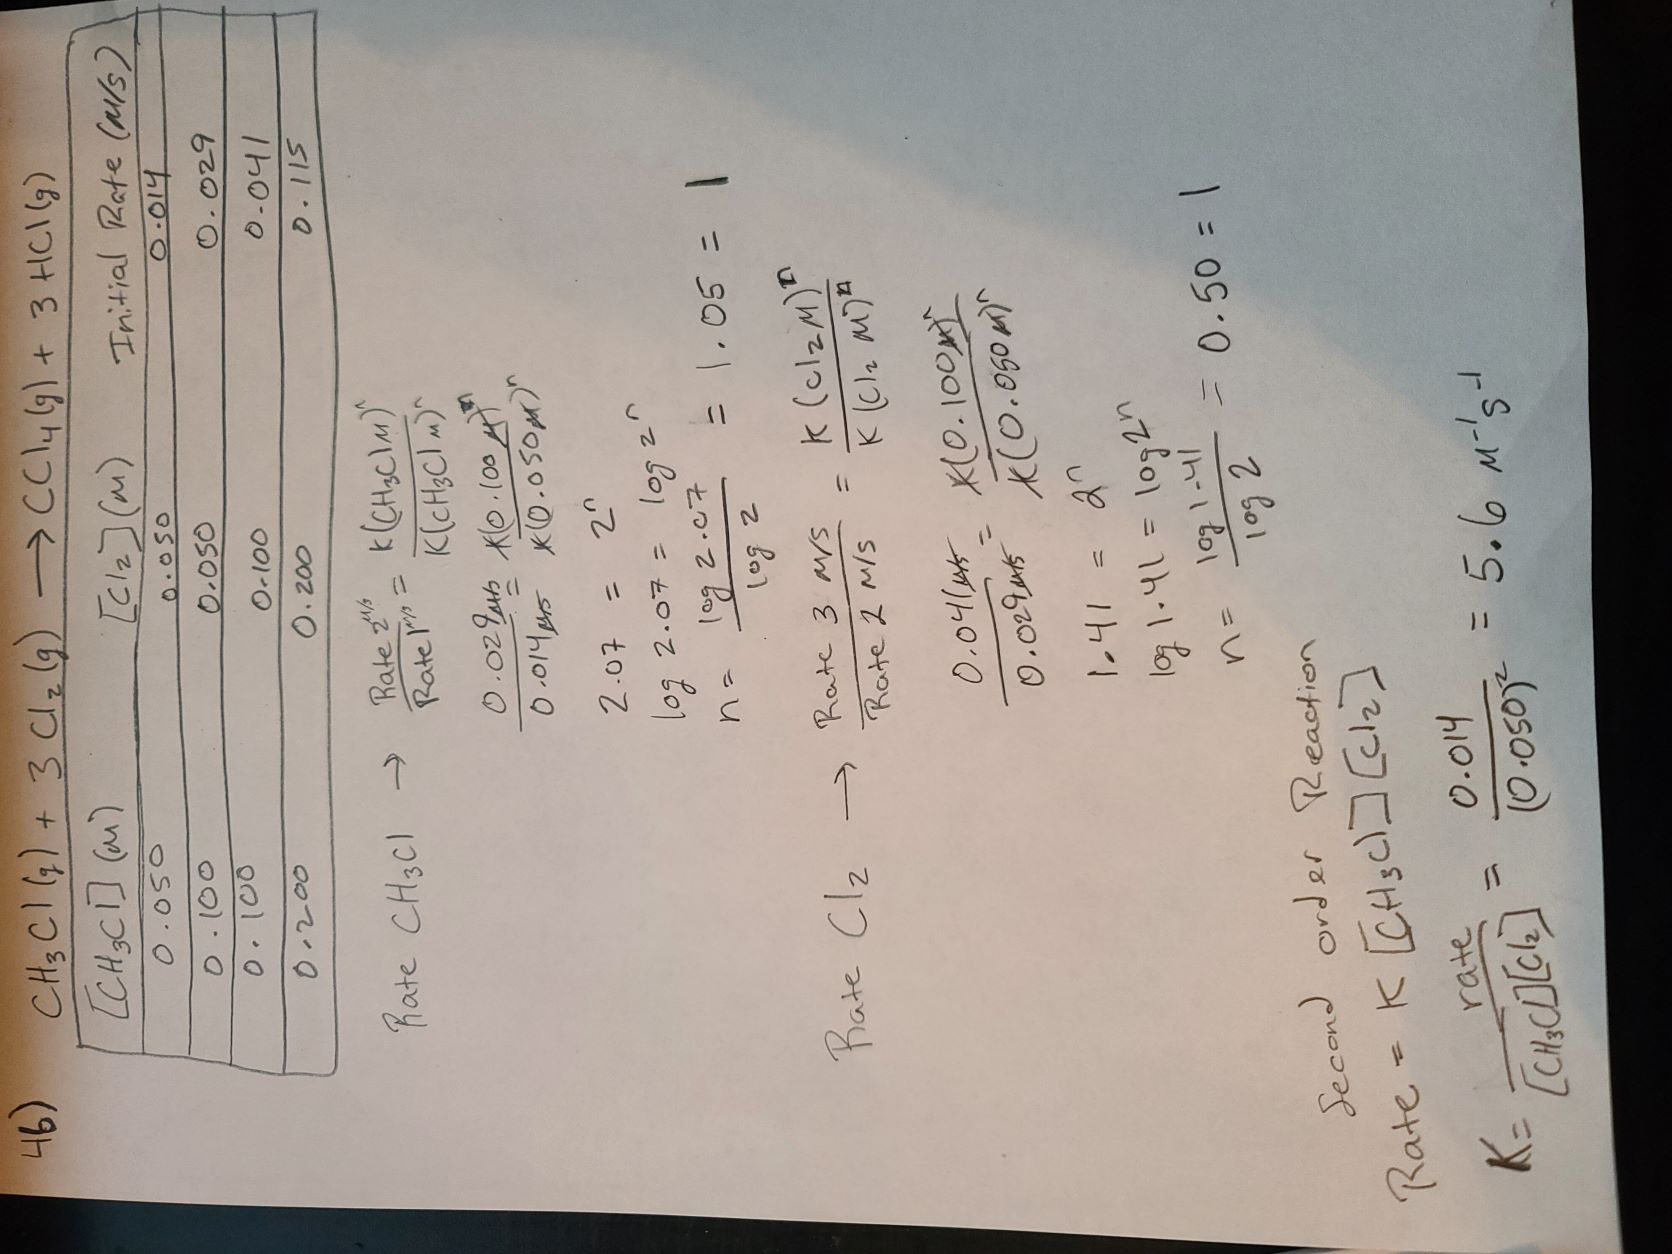 46) CH₃Cl(g) + 3 Cl₂(g) → CCl₄(g) + 3 HCl(g)
[CH₃Cl] (M) [Cl₂] (M) Initial Rate (M/s)
0.050 0.050 0.014
0.100 0.050 0.029
0.100 0.100 0.041
0.200 0.200 0.115
Rate CH₃Cl → Rate 2 M/s / Rate 1 M/s = K(CH₃Cl M)ⁿ / K(CH₃Cl M)ⁿ
0.029 M/s / 0.014 M/s = K(0.100 M)ⁿ / K(0.050 M)ⁿ
2.07 = 2ⁿ
log 2.07 = log 2ⁿ
n = log 2.07 / log 2 = 1.05 = 1
Rate Cl₂ → Rate 3 M/s / Rate 2 M/s = K (Cl₂ M)ⁿ / K (Cl₂ M)ⁿ
0.041 M/s / 0.029 M/s = K(0.100 M)ⁿ / K(0.050 M)ⁿ
1.41 = 2ⁿ
log 1.41 = log 2ⁿ
n = log 1.41 / log 2 = 0.50 = 1
Second order Reaction
Rate = K [CH₃Cl] [Cl₂]
K = rate / [CH₃Cl][Cl₂] = 0.014 / (0.050)² = 5.6 M⁻¹s⁻¹